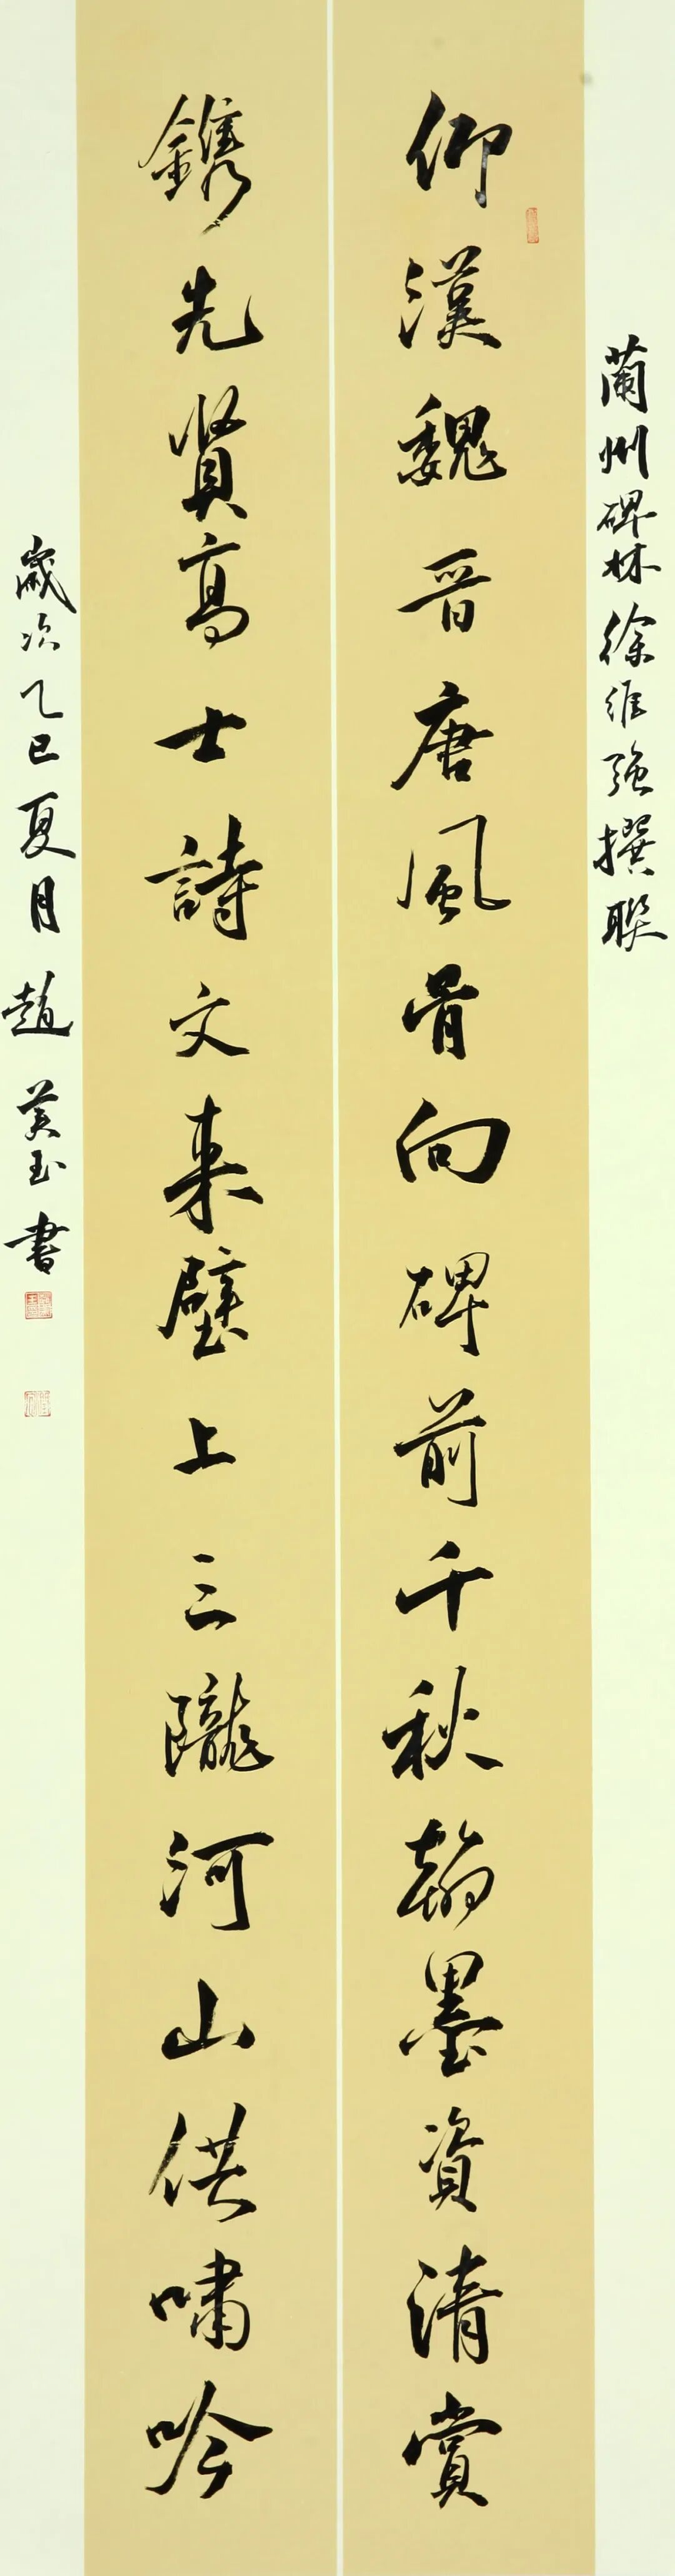 蘭州碑林徐維強撰聯
仰漢魏晉唐風骨向碑前千秋翰墨資清賞
鐫先賢高士詩文來壁上三隴河山供嘯吟
歲次乙巳夏月趙美玉書